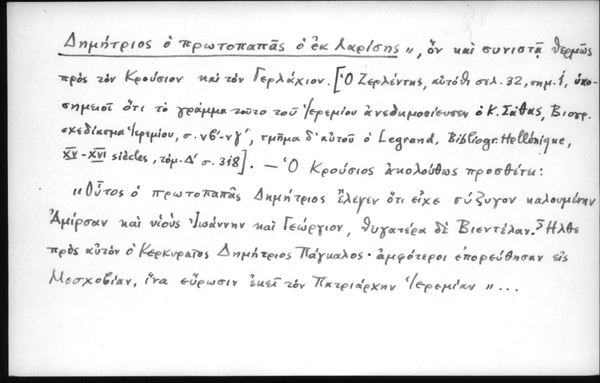 Δημήτριος ὁ πρωτοπαπᾶς ὁ ἐκ Λαρίσης", ὃν καὶ συνιστᾷ θερμῶς
πρὸς τὸν Κρούσιον καὶ τὸν Γερλάχιον. [Ὁ Ζερλέντης, αὐτόθι σελ. 32, σημ. 1, ὑπο-
σημειοῖ ὅτι τὸ γράμμα τοῦτο τοῦ Ἱερεμίου ἀνεδημοσίευσεν ὁ Κ. Σάθας, Βιογρ.
σχεδίασμα Ἱερεμίου, σ. νβ'-νγ', τμῆμα δ' αὐτοῦ ὁ Legrand, Bibliogr. Hellénique,
XV-XVI siècles, τόμ. Δ' σ. 318]. — Ὁ Κρούσιος ἀκολούθως προσθέτει:
"Οὗτος ὁ πρωτοπαπᾶς Δημήτριος ἔλεγεν ὅτι εἶχε σύζυγον καλουμένην
Ἀμίρσαν καὶ υἱοὺς Ἰωάννην καὶ Γεώργιον, θυγατέρα δὲ Βιεντέλαν. Ἦλθε
πρὸς αὐτὸν ὁ Κερκυραῖος Δημήτριος Πάγκαλος· ἀμφότεροι ἐπορεύθησαν εἰς
Μοσχοβίαν, ἵνα εὕρωσιν ἐκεῖ τὸν Πατριάρχην Ἱερεμίαν"...